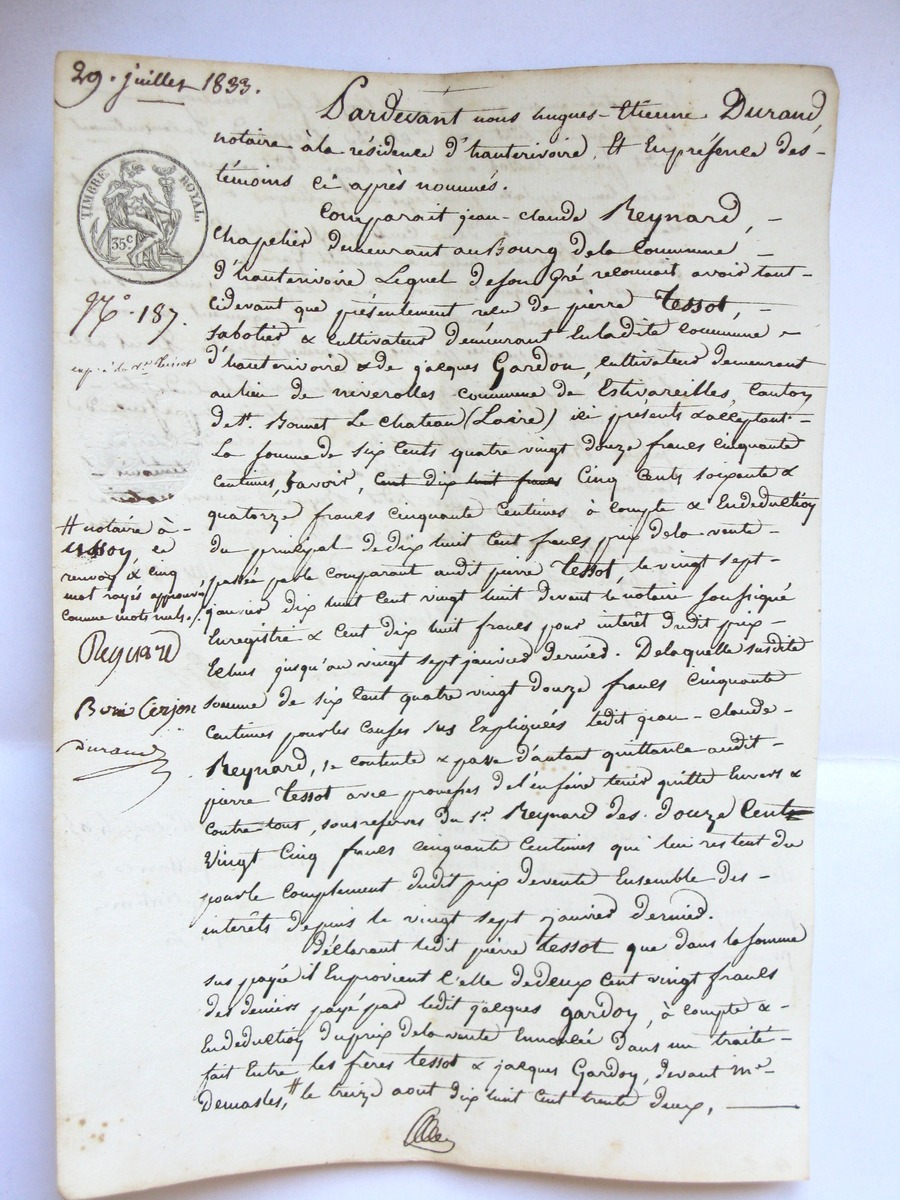 29. juillet 1833.
TIMBRE ROYAL.
35 c.
N.° 187.
# notaire à -
usson, ce
renvoy & cinq
mot rayés approuvés
comme mots nuls.
Reynard
Cerjon
Durand
Pardevant nous hugues-Etienne Durand
notaire à la résidence d'hauterivoire, Et En présence des -
témoins ci après nommés.
Comparait jean-claude Reynard, -
Chapelier demeurant au Bourg de la Commune -
d'hauterivoire Lequel de son gré reconnait avoir tant -
cidevant que présentement reçu de pierre tessot, -
sabotier & cultivateur demeurant En la dite commune -
d'hauterivoire & de jacques Gardon, cultivateur demeurant
au lieu de neverolles commune de Estivareilles, Canton
de St. Bonnet Le Chateau (Loire) ici présents & acceptant -
La somme de six cents quatre vingt douze francs cinquante
centimes, savoir, cent dix huit francs Cinq Cents soixante &
quatorze francs cinquante centimes à compte & En deduction
du principal de dix huit Cent francs prix de la vente -
passée par le comparant audit pierre tessot, le vingt sept -
janvier dix huit cent vingt huit devant le notaire soussigné
Enregistré & Cent dix huit francs pour intérêt dudit prix -
Echus jusqu'au vingt sept janvier dernier. De laquelle susdite
somme de six Cent quatre vingt douze francs cinquante
centimes pour les causes sus Expliquées ledit jean-claude -
Reynard, se contente & passe d'autant quittance audit -
pierre tessot avec promesses de l'en faire tenir quitte Envers &
contre tout, sous réserves du Sr. Reynard des douze Cent
vingt cinq francs cinquante centimes qui lui restent du
pour le complement dudit prix de vente Ensemble des -
intérêts depuis le vingt sept janvier dernier.
Déclarant ledit pierre tessot que dans la somme
sus payée il En provient celle de deux cent vingt francs
des deniers payé par ledit jacques gardon, à compte &
En deduction du prix de la vente Enoncée dans un traité -
fait Entre les frères tessot & jacques Gardon, devant Me -
Demasles, # le treize aout dix huit cent trente deux,